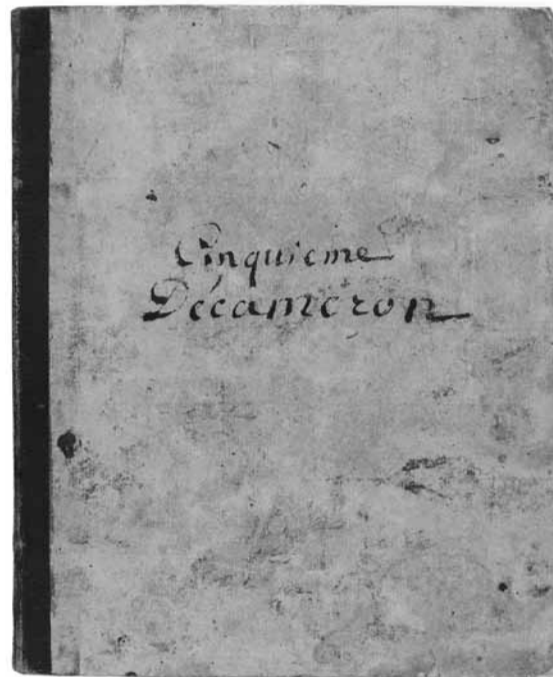 Cinquieme
Décameron